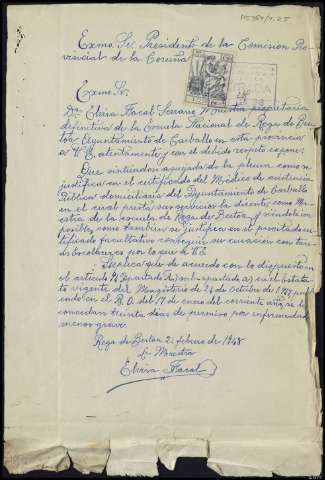 Exmo. Sr. Presidente de la Comisión Pro-
vincial de la Coruña
Exmo. Sr.
Dª Elvira Fiscal Serrano Maestra propietaria
definitiva de la Escuela Nacional de Rega de
Ayuntamiento de Carballo en esta provincia
a V. E. atentamente y con el debido respeto expone:
Que encontrándose aquejada de la pleura como se
justifica en el certificado del Médico de asistencia
Pública domiciliaria del Ayuntamiento de Carballo
en el cual presta sus servicios la dicente como Ma-
estra de la escuela de Rega de Bertoa, y siendole im-
posible, como también se justifica en el precitado cer-
tificado facultativo conseguir su curación con tan-
de V.E.
Suplica que de acuerdo con lo dispuesto en
el artículo
vigente del Magisterio de 24 de Octubre de 1947 publi-
cado en el B. O. del 17 de enero del corriente año, se la
concedan treinta días de permiso por enfermedad
menos grave.
Rega de Bertoa 2 febrero de 1948
La Maestra
Elvira Fiscal